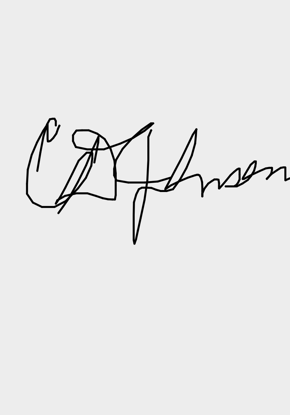 CD Johnson